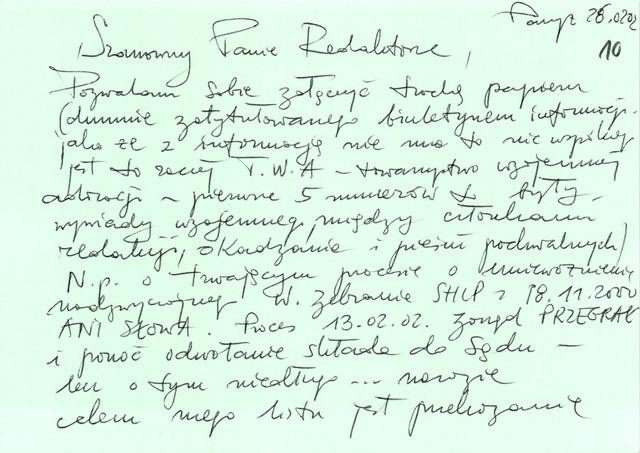 Paryż 28.02.02
10
Szanowny Panie Redaktorze,
Pozwalam sobie załączyć trochę papieru
(dumnie zatytułowanego biuletynem informacji.
jako że z informacją nie ma to nic wspólnego
jest to raczej T.W.A - towarzystwo wzajemnej
adoracji - pierwsze 5 numerów to były
wywiady wzajemne między członkami
redakcji, okadzanie i pieśni pochwalnych)
N.p. o trwającym procesie o unieważnienie
nadzwyczajnego W. Zebrania SHLP z 18.11.2000
ANI SŁOWA. Proces 13.02.02. zarząd PRZEGRAŁ
i ponoć odwołanie składa do Sądu -
lecz o tym niedługo... narazie
celem mego listu jest przekazanie